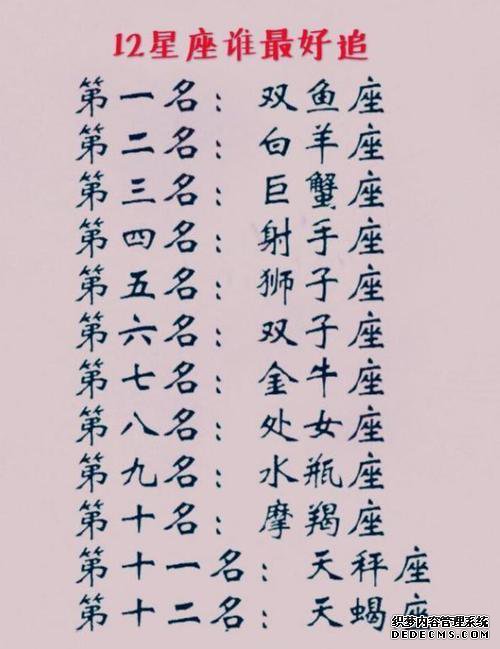 12星座谁最好追
第一名：双鱼座
第二名：白羊座
第三名：巨蟹座
第四名：射手座
第五名：狮子座
第六名：双子座
第七名：金牛座
第八名：处女座
第九名：水瓶座
第十名：摩羯座
第十一名：天秤座
第十二名：天蝎座
织梦内容管理系统
DEDECMS.COM